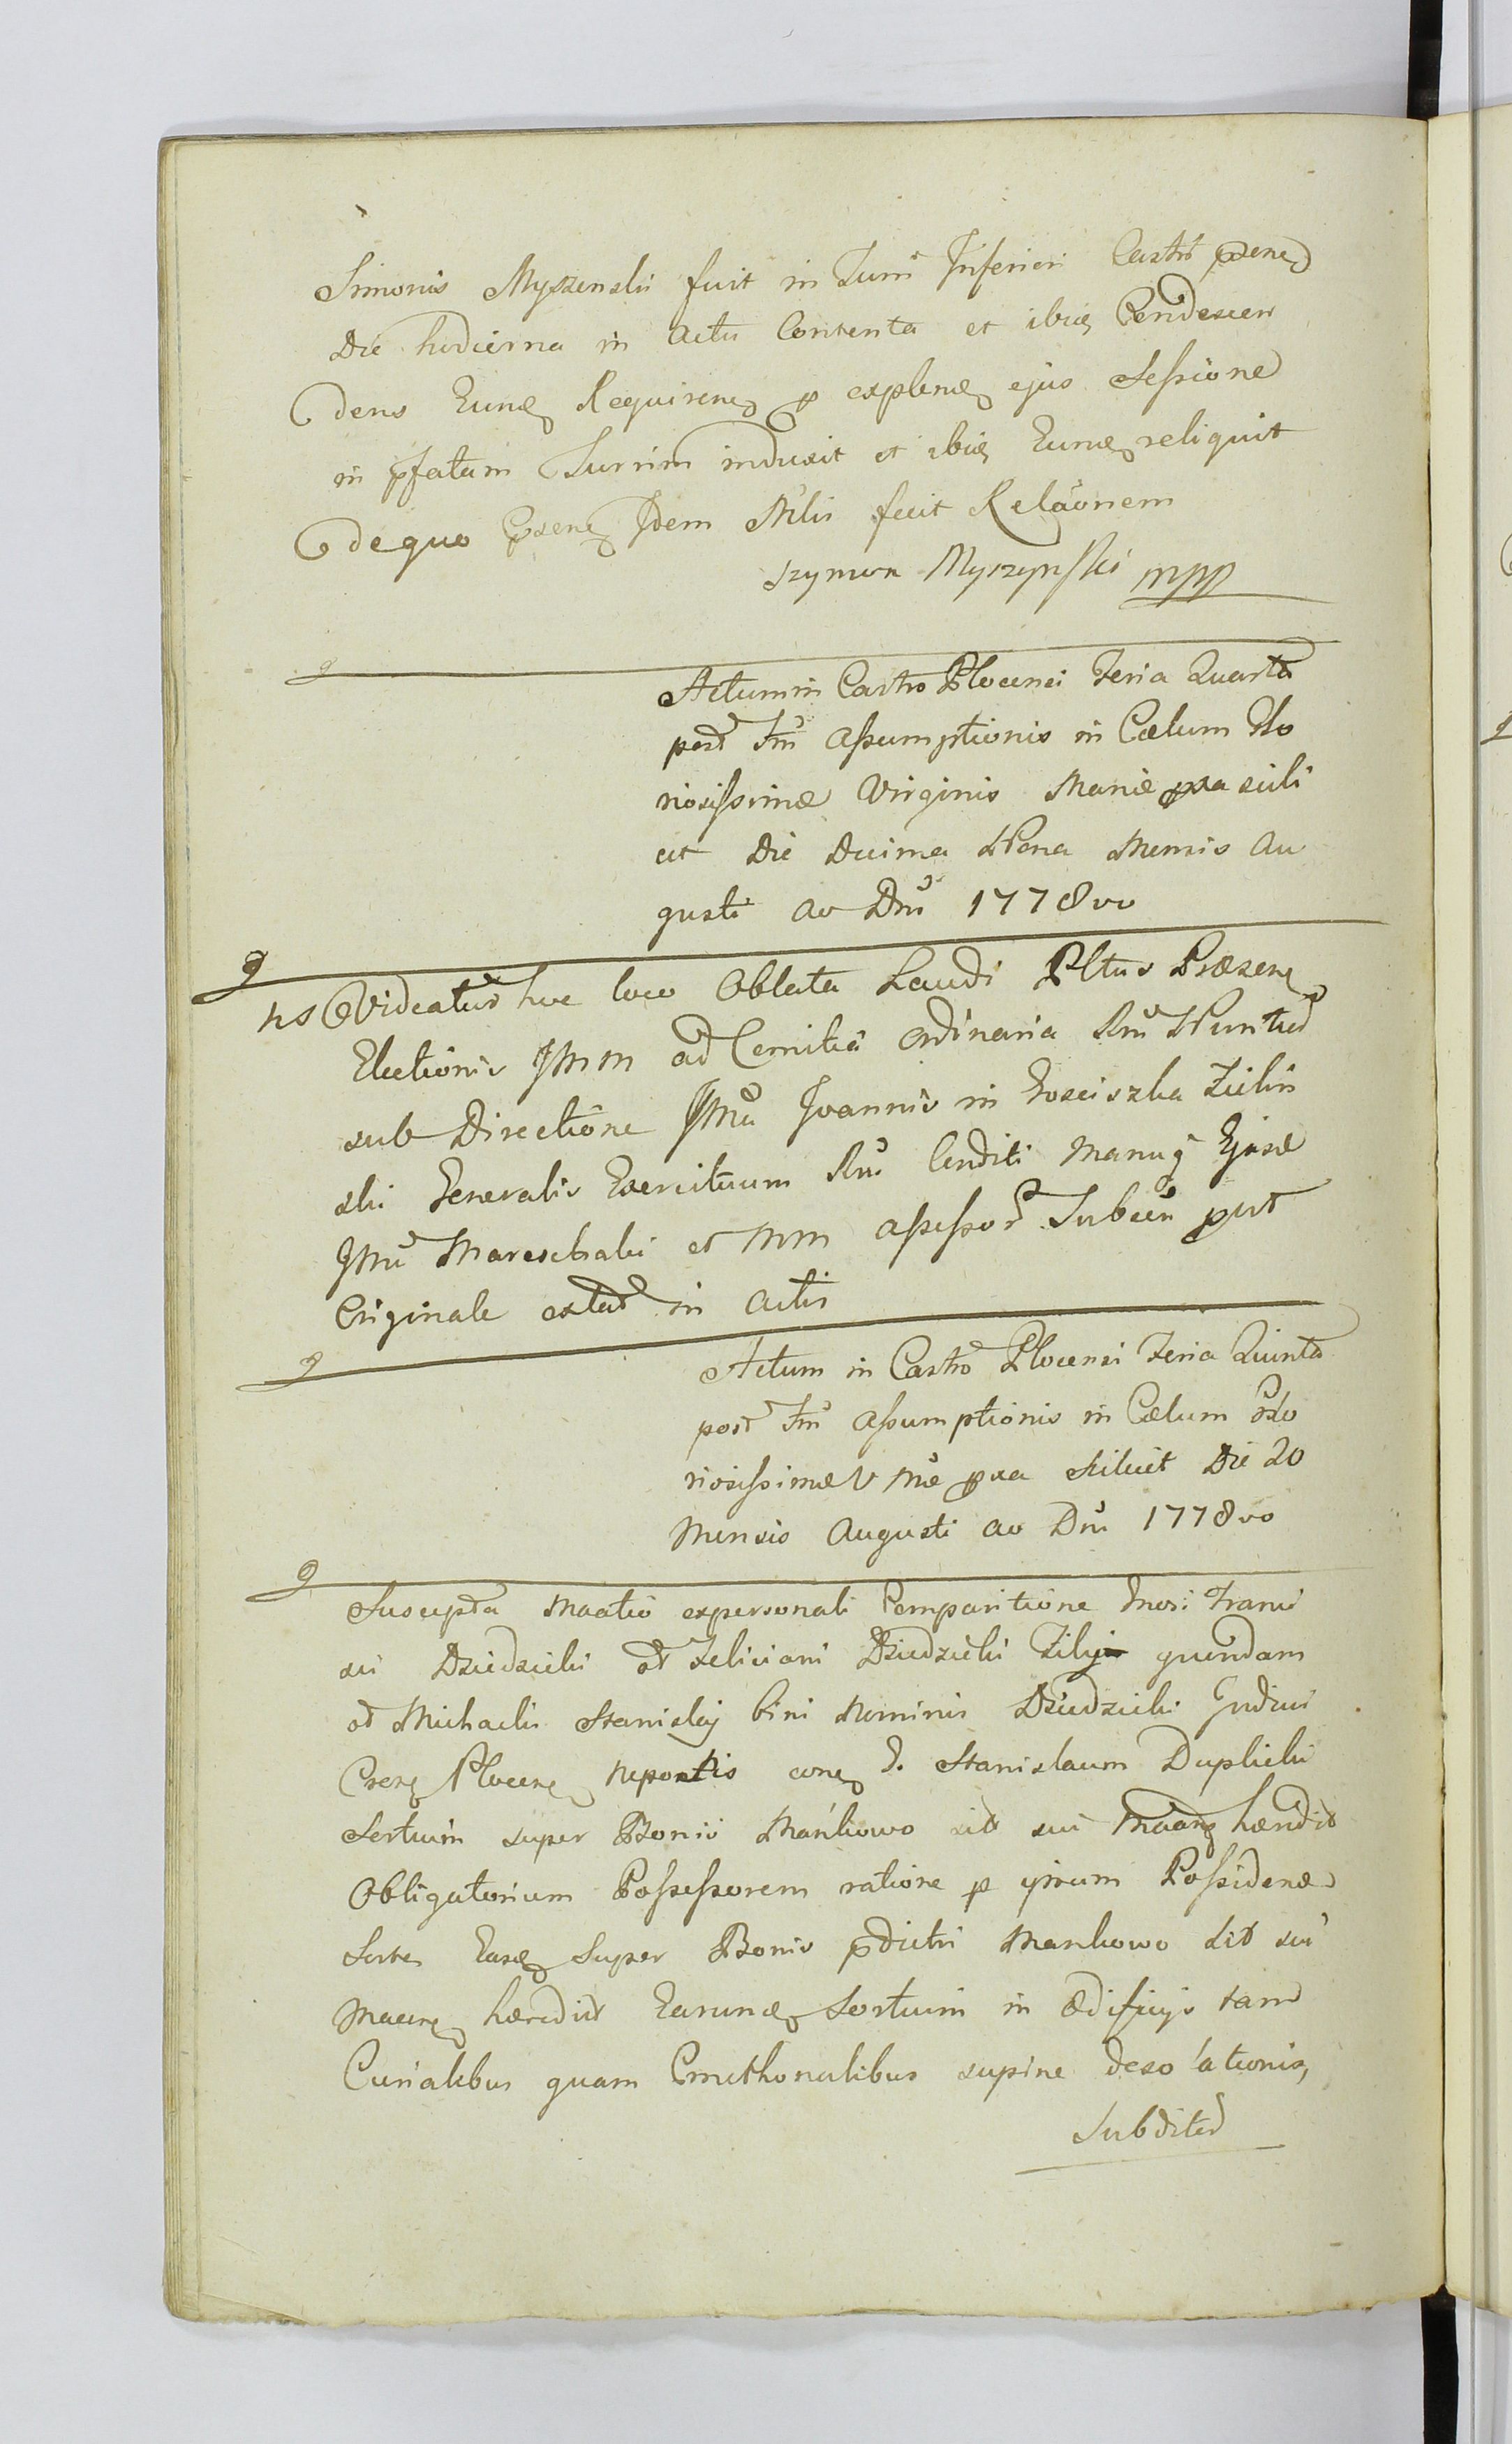 Simonis Myszenski fuit in Turri Inferiori Castri praesen
Die hodierna in Actu Contenta et ibid Condescen
dens Eund Requirend p explend ejus Sessione
in pfatam Turrim induxit et ibid Eund reliquit
de quo Praesens Idem Mlis fecit Relaonem
Szymon Myszynski mpp
Actum in Castro Plocensi Feria Quarta
post Fm Assumptionis in Cælum Glo
riosissimæ Virginis Mariæ pxa scili
cet Die Decima Nona Mensis Au
gusti Ao Dni 1778vo
NS Videatur hoc loco Oblata Laudi Pltus Præsens
Electionis IMM ad Comitia Ordinaria Rni Nuntior
sub Directione IMci Joannis in Gosciszka Zielin
ski Generalis Exercituum Rni Conditi Manuq Ejusd
IMci Mareschalci et MM Assessor Subscri put
Originale extat in Actis
Actum in Castro Plocensi Feria Quinta
post Fm Assumptionis in Cælum Glo
riosissimæ V Mæ pxa Scilicet Die 20
Mensis Augusti Ao Dni 1778vo
Suscepta Maatio expersonali Comparitione Gnosi Franci
sci Dziedzicki et Feliciani Dziedzicki Filij quondam
et Michaelis Stanislaj bini Nominis Dziedzicki Judicii
Nepotis con G. Stanislaum Duplicki
Sortium super Bonis Mańkowo sit sui hærdit
Obligatorium Possessorem ratione p ipsum Possidend
Sortes Easd Super Bonis pdictis Mankowo Sit sui
hæredit Earund Sortium in Ædificijs tam
Curialibus quam Cmethonalibus supine desolationis,
Subditor